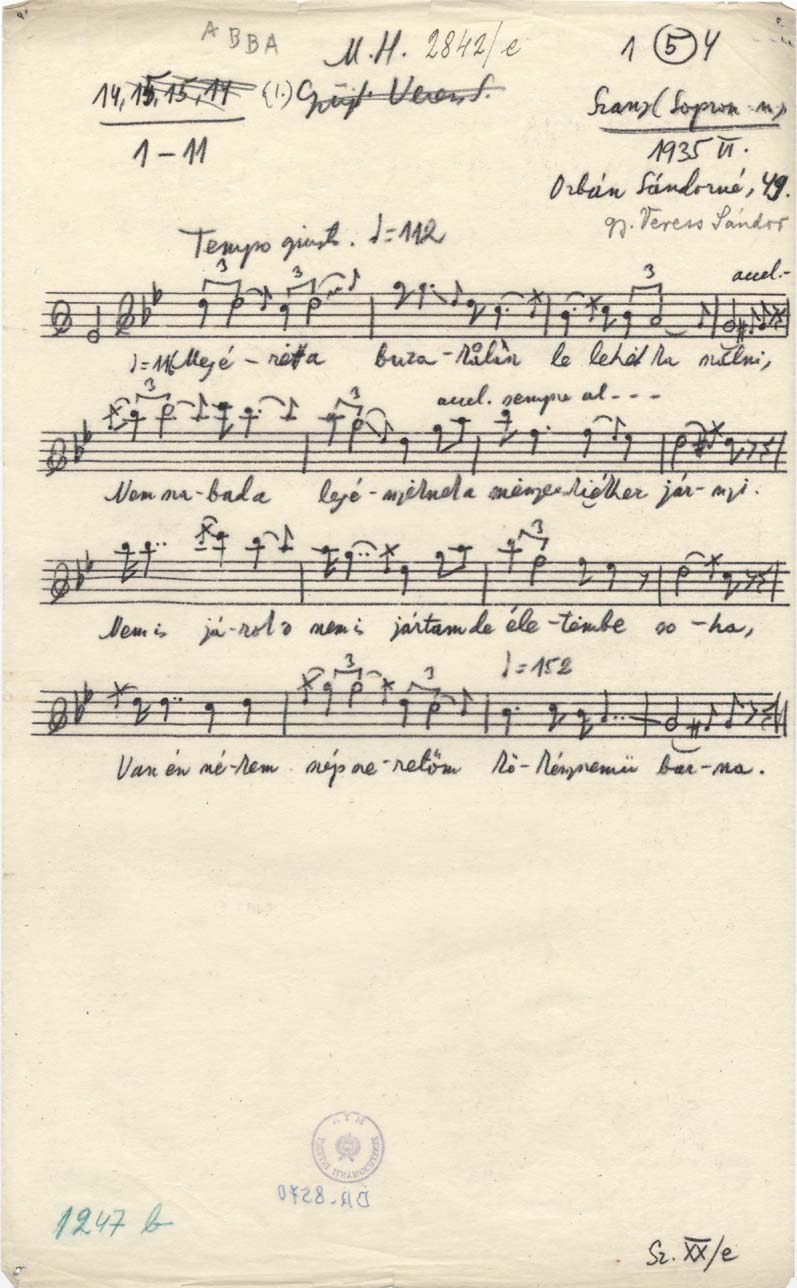 A B B A
M. H. 2842/e
1 5 4
14, 15, 15, 14 (1.) Gyűjt. Veress S.
Szany (Sopron m.)
1-11
1935 VI.
Orbán Sándorné, 49.
gy. Veress Sándor
Tempo giusto. ♩=112
3 3 3
accel.-
♩=116 Megé-rëtt a buza-kalász le lehet ka szálni,
3 3
accel. sempre al - - -
Nem sza-bad a legé-nyëknek a menyecskiékhez jár-nyi.
3
Nem is já-rok s nem is jártam de éle-tembe so-ha,
3 3 ♩=152
Van én né-kem szép sze-retőm kö-kényszemü bar-na.
DA.8570
1247 b
Sz. XX/e